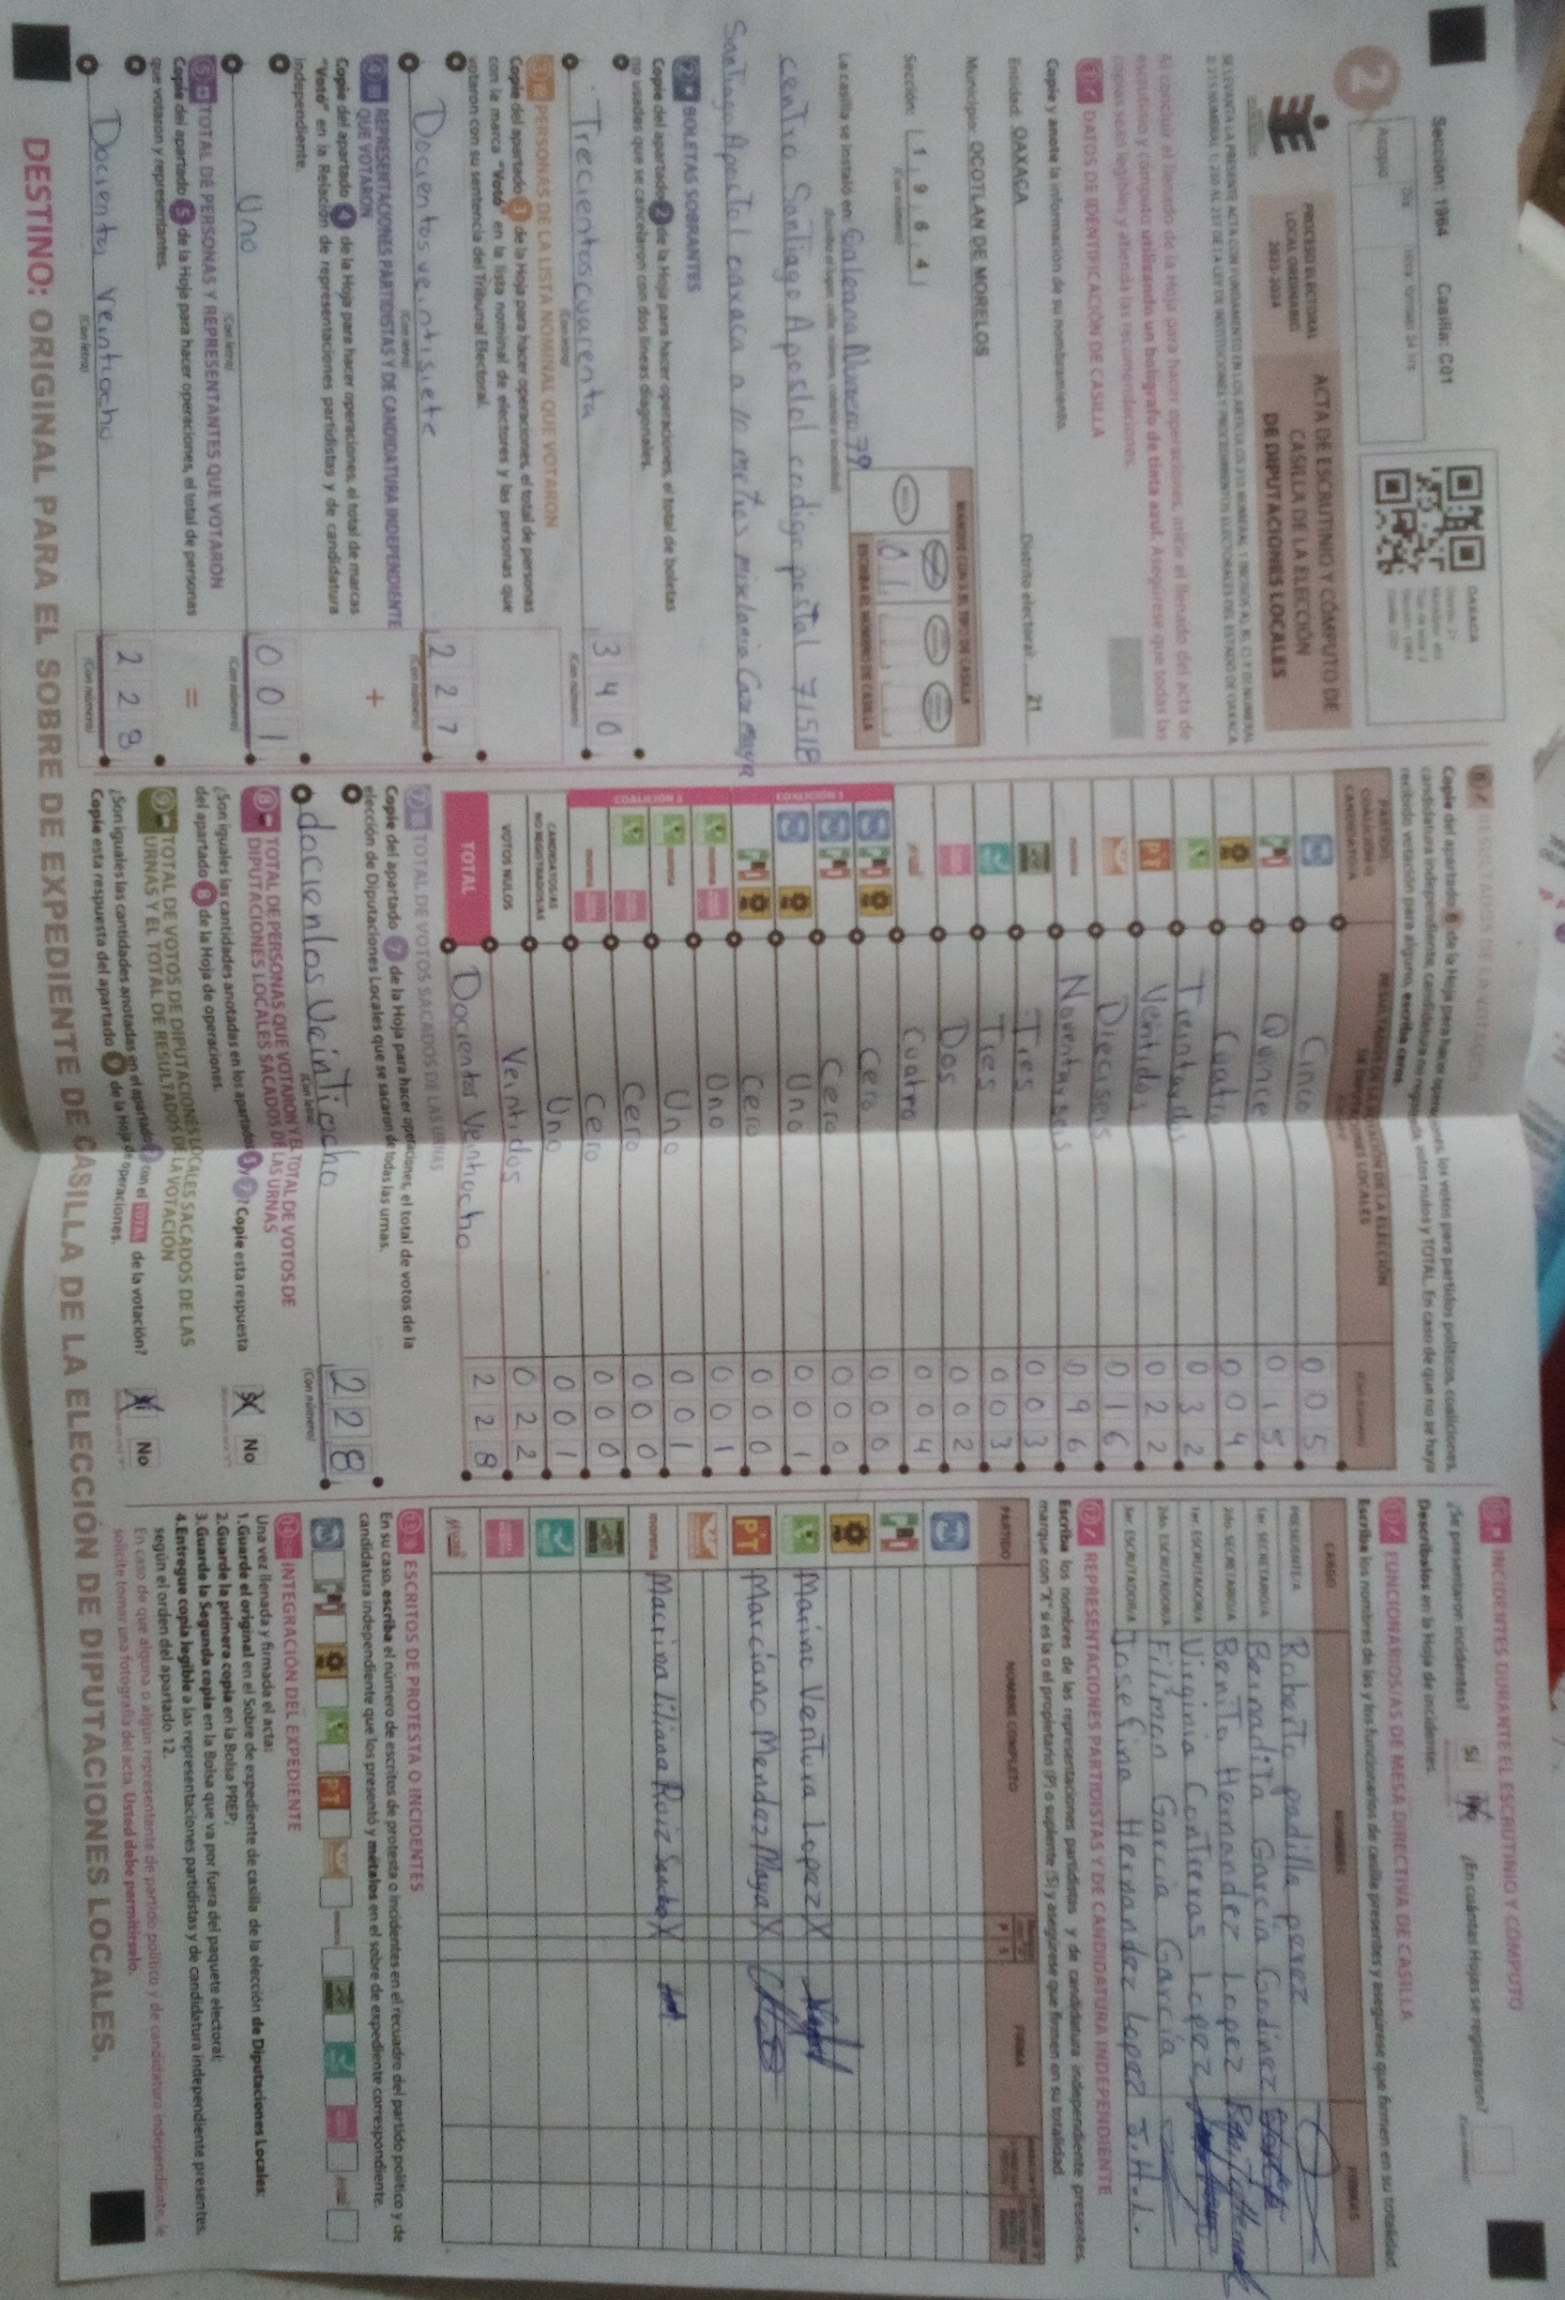 Sección: 1964 Casilla: C01
OAXACA
PROCESO ELECTORAL
LOCAL ORDINARIO
2023-2024
ACTA DE ESCRUTINIO Y CÓMPUTO DE
CASILLA DE LA ELECCIÓN
DE DIPUTACIONES LOCALES
Al concluir el llenado de la Hoja para hacer operaciones, inicie el llenado del acta de
escrutinio y cómputo utilizando un bolígrafo de tinta azul. Asegúrese que todas las
copias sean legibles y atienda las recomendaciones.
DATOS DE IDENTIFICACIÓN DE CASILLA
Copie y anote la información de su nombramiento.
Entidad: OAXACA Distrito electoral: 21
Municipio: OCOTLAN DE MORELOS
Sección: 1 9 6 4
(Con número)
MARQUE CON X EL TIPO DE CASILLA
ESCRIBA EL NÚMERO DE CASILLA
01
La casilla se instaló en: Galeana Numero 79
centro Santiago Apostol codigo postal 71518
Santiago Apostol oaxaca a 10 metros miscelania Casa maya
2 BOLETAS SOBRANTES
Copie del apartado 2 de la Hoja para hacer operaciones, el total de boletas
no usadas que se cancelaron con dos líneas diagonales.
Trecientos cuarenta 340
(Con letra) (Con número)
3 PERSONAS DE LA LISTA NOMINAL QUE VOTARON
Copie del apartado 3 de la Hoja para hacer operaciones, el total de personas
con la marca "Votó" en la lista nominal de electores y las personas que
votaron con su sentencia del Tribunal Electoral.
Docientos veintisiete 227
(Con letra) (Con número)
4 REPRESENTACIONES PARTIDISTAS Y DE CANDIDATURA INDEPENDIENTE
QUE VOTARON
+
Copie del apartado 4 de la Hoja para hacer operaciones, el total de marcas
"Votó" en la Relación de representaciones partidistas y de candidatura
independiente.
Uno 001
(Con letra) (Con número)
5 TOTAL DE PERSONAS Y REPRESENTANTES QUE VOTARON
=
Copie del apartado 5 de la Hoja para hacer operaciones, el total de personas
que votaron y representantes.
Docientos veintiocho 228
(Con letra) (Con número)
6 RESULTADOS DE LA VOTACIÓN
Copie del apartado 6 de la Hoja para hacer operaciones, los votos para partidos políticos, coaliciones,
candidatura independiente, candidatura no registrada, votos nulos y TOTAL. En caso de que no se haya
recibido votación para alguno, escriba ceros.
Cinco 005
Quince 015
Cuatro 004
PT Treinta dos 032
Veintidos 022
Dieciseis 016
morena Noventa y seis 096
Tres 003
Tres 003
Dos 002
Cuatro 004
Cero 000
Cero 000
COALICIÓN 1
Uno 001
Cero 000
Uno 001
morena Uno 001
COALICIÓN 2
Cero 000
morena Cero 000
CANDIDATOS/AS
NO REGISTRADOS/AS Uno 001
VOTOS NULOS Veintidos 022
TOTAL Docientos Veintiocho 228
7 TOTAL DE VOTOS SACADOS DE LAS URNAS
Copie del apartado 7 de la Hoja para hacer operaciones, el total de votos de la
elección de Diputaciones Locales que se sacaron de todas las urnas.
docientos Veintiocho 228
(Con letra) (Con número)
8 TOTAL DE PERSONAS QUE VOTARON Y EL TOTAL DE VOTOS DE
DIPUTACIONES LOCALES SACADOS DE LAS URNAS
¿Son iguales las cantidades anotadas en los apartados 5 y 7? Copie esta respuesta
del apartado 8 de la Hoja de operaciones.
Sí No
9 TOTAL DE VOTOS DE DIPUTACIONES LOCALES SACADOS DE LAS
URNAS Y EL TOTAL DE RESULTADOS DE LA VOTACIÓN
¿Son iguales las cantidades anotadas en el apartado 7 con el TOTAL de la votación?
Copie esta respuesta del apartado 9 de la Hoja de operaciones.
Sí No
INCIDENTES DURANTE EL ESCRUTINIO Y CÓMPUTO
¿Se presentaron incidentes? Sí No ¿En cuántas Hojas se registraron?
Descríbalos en la Hoja de incidentes.
FUNCIONARIOS/AS DE MESA DIRECTIVA DE CASILLA
Escriba los nombres de las y los funcionarios de casilla presentes y asegúrese que firmen en su totalidad.
CARGO NOMBRES FIRMAS
PRESIDENTE/A Roberto padilla perez
1er. SECRETARIO/A Bernadita Garcia Godinez
2do. SECRETARIO/A Benito Hernandez Lopez
1er. ESCRUTADOR/A Virginia Contreras Lopez
2do. ESCRUTADOR/A Filimon Garcia Garcia
3er. ESCRUTADOR/A Josefina Hernandez Lopez J.H.L.
12 REPRESENTACIONES PARTIDISTAS Y DE CANDIDATURA INDEPENDIENTE
Escriba los nombres de las representaciones partidistas y de candidatura independiente presentes,
marque con "X" si es la o el propietario (P) o suplente (S) y asegúrese que firmen en su totalidad.
PARTIDO NOMBRE COMPLETO P S FIRMA
Marino Ventura Lopez X
PT Marciano Mendez Maya X
morena Macrina liliana Ruiz X
13 ESCRITOS DE PROTESTA O INCIDENTES
En su caso, escriba el número de escritos de protesta o incidentes en el recuadro del partido político y de
candidatura independiente que los presentó y métalos en el sobre de expediente correspondiente.
PT
14 INTEGRACIÓN DEL EXPEDIENTE
Una vez llenada y firmada el acta:
1.Guarde el original en el Sobre de expediente de casilla de la elección de Diputaciones Locales;
2.Guarde la primera copia en la Bolsa PREP;
3.Guarde la Segunda copia en la Bolsa que va por fuera del paquete electoral;
4.Entregue copia legible a las representaciones partidistas y de candidatura independiente presentes,
según el orden del apartado 12.
En caso de que alguna o algún representante de partido político y de candidatura independiente, le
solicite tomar una fotografía del acta. Usted debe permitírselo.
DESTINO: ORIGINAL PARA EL SOBRE DE EXPEDIENTE DE CASILLA DE LA ELECCIÓN DE DIPUTACIONES LOCALES.